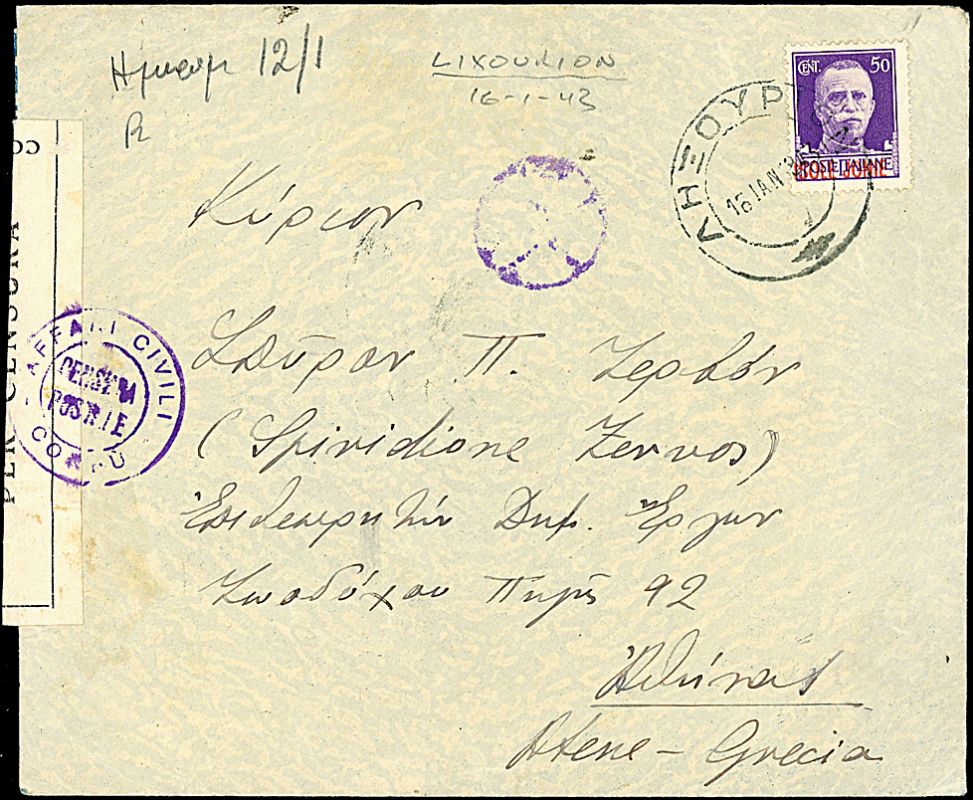 12/1
LIXOURION
16-1-43
R
CENT. 50
POSTE ITALIANE
ISOLE JONIE
ΛΗΞΟΥΡΙ
16 ΙΑΝ
Κύριον
Σπύρον Π. Ζερβόν
(Spiridione Zervos)
Ἐπιθεωρητήν Δημ. Ἔργων
Ζωοδόχου Πηγῆς 92
Ἀθήνας
Atene - Grecia
PER CENSURA
AFFARI CIVILI
CENSURA
POSTALE
CORFU